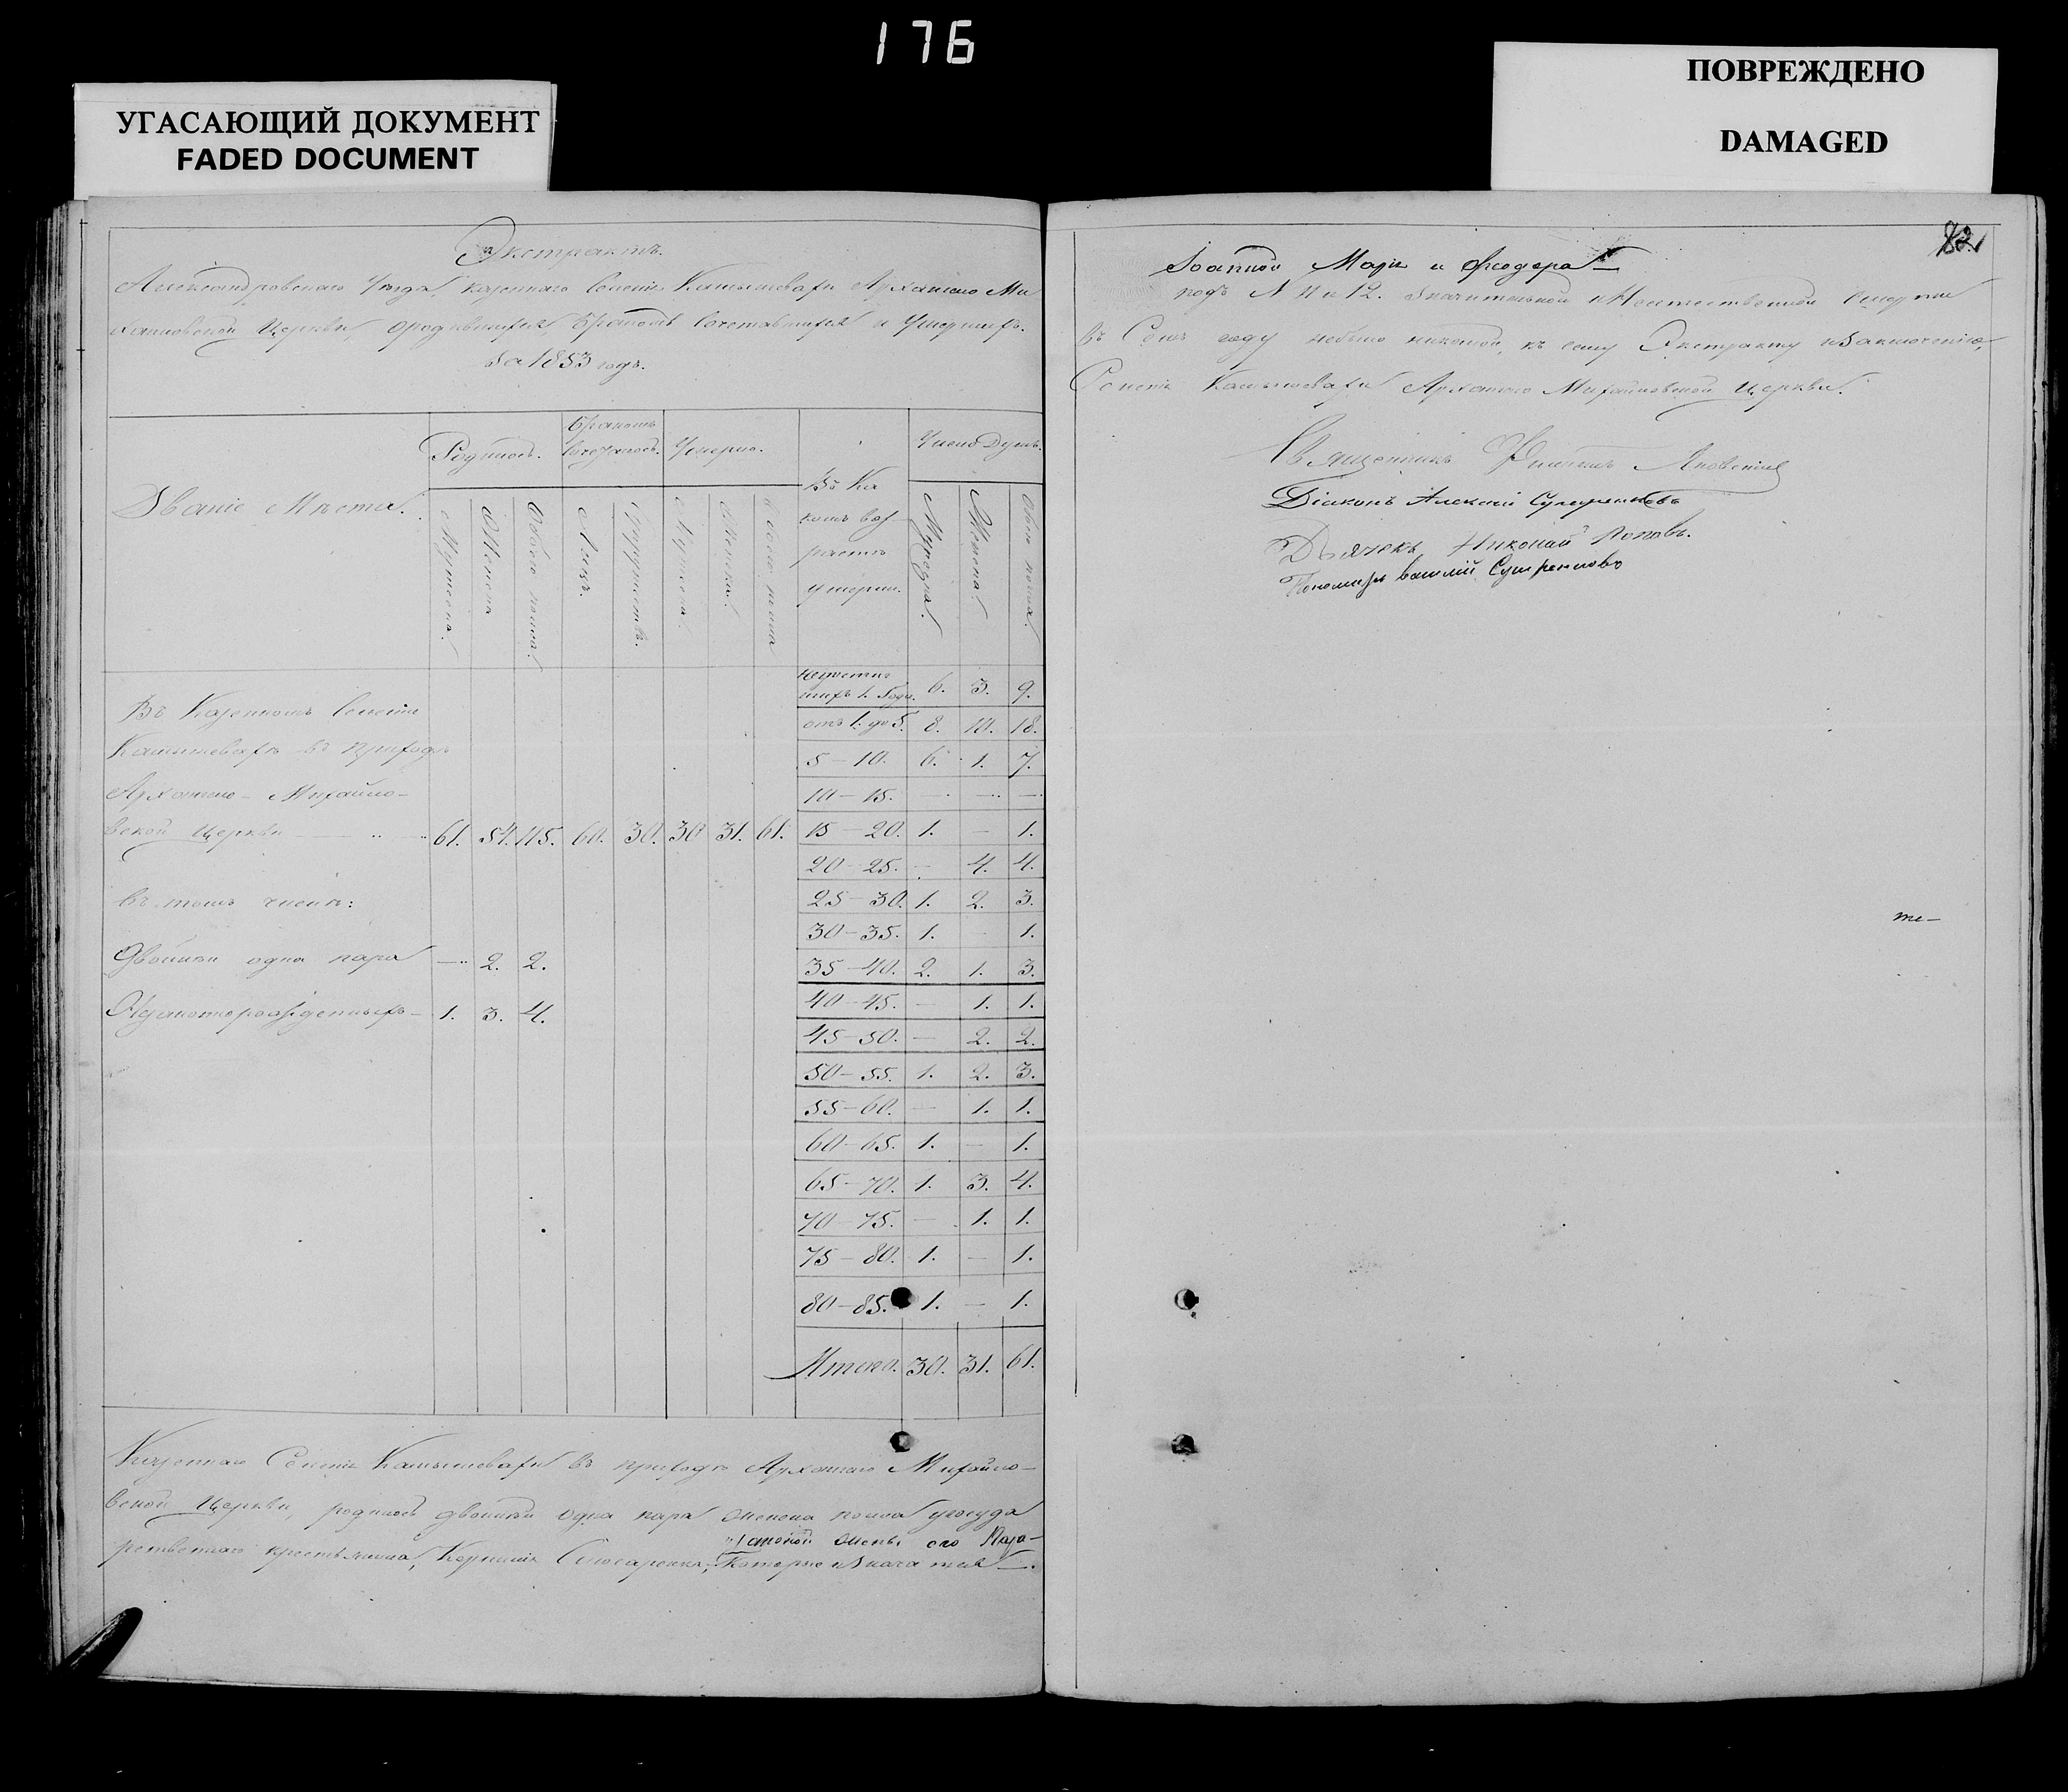 176
УГАСАЮЩИЙ ДОКУМЕНТ
FADED DOCUMENT
ПОВРЕЖДЕНО
DAMAGED
Экстрактъ.
Александровскаго Уѣзда, казеннаго Селенія Камышевахи Архангело Ми
хайловской Церкви, о родившихся Бракомъ Сочетавшихся и Умершихъ.
За 1853 годъ.
Званіе Мѣста.
Родилось.
Бракомъ
Сочеталось.
Умерло.
Въ Ка
комъ воз
растѣ
умерли.
Число Душъ.
Мужеска.
Женска
Обоего пола.
Лицъ.
Супружествъ.
Мужеска.
Женска.
Обоего пола
Мужеска.
Женска.
Обоего пола.
Въ Казенномъ Селеніи
Камышевахѣ въ приходѣ
Архангело-Михайло-
вской Церкви 61. 54. 115. 60. 30. 30 31. 61.
въ томъ числѣ:
Двойни одна пара — 2. 2.
1. 3. 4.
1. Года. 6. 3. 9.
отъ 1. до 5. 8. 10. 18.
5 — 10. 6. 1. 7.
10 — 15. — — —
15 — 20. 1. — 1.
20 — 25. — 4. 4.
25 — 30. 1. 2. 3.
30 — 35. 1. — 1.
35 — 40. 2. 1. 3.
40 — 45. — 1. 1.
45 — 50. — 2. 2.
50 — 55. 1. 2. 3.
55 — 60. — 1. 1.
60 — 65. 1. — 1.
65 — 70. 1. 3. 4.
70 — 75. — 1. 1.
75 — 80. 1. — 1.
80 — 85. 1. — 1.
Итого. 30. 31. 61.
Казеннаго Селенія Камышевахи въ приходѣ Архангело Михайло-
вской Церкви, родилось двойни одна пара женска пола у госуда
законой жены его
рственнаго крестьянина, Корнилія Слюсаренка, которые значатся
82
Марія и Феодора
подъ N 11 и 12.
въ Семъ году небыло никакой, къ сему Экстракту
Селенія Камышевахи Архангело Михайловской Церкви.
Священникъ
Діаконъ Алексій
Дьячекъ Николай Поповъ.
Пономарь Василій
те—